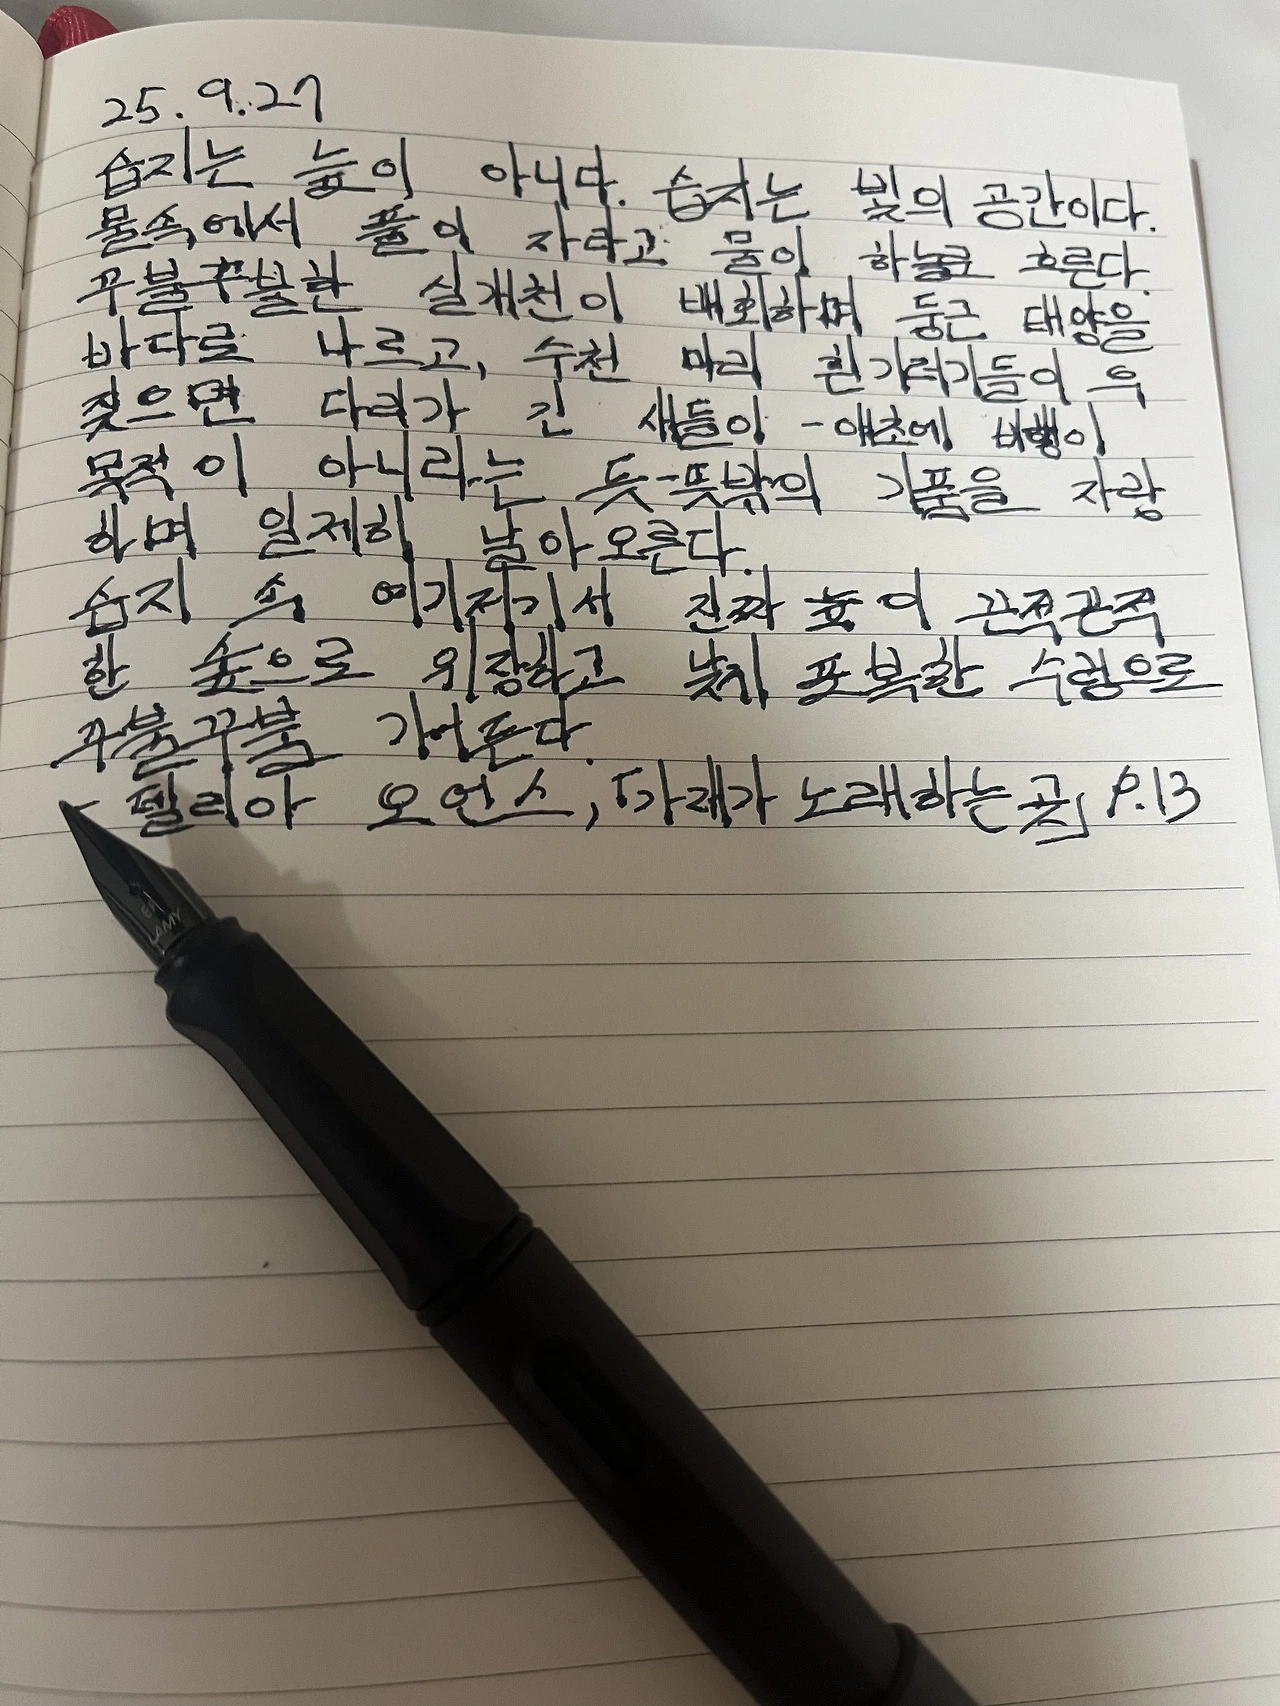 25.9.27
습지는 늪이 아니다. 습지는 빛의 공간이다.
물속에서 풀이 자라고 물이 하늘로 흐른다.
꾸불꾸불한 실개천이 배회하며 둥근 태양을
바다로 나르고, 수천 마리 흰기러기들이 우
짖으면 다리가 긴 새들이 - 애초에 비행이
목적이 아니라는 듯 - 뜻밖의 기품을 자랑
하며 일제히 날아오른다.
습지 속 여기저기서 진짜 늪이 끈적끈적
한 숲으로 위장하고 낮게 포복한 수렁으로
꾸불꾸불 기어든다.
- 델리아 오언스, 「가재가 노래하는 곳」 P.13
EF
LAMY